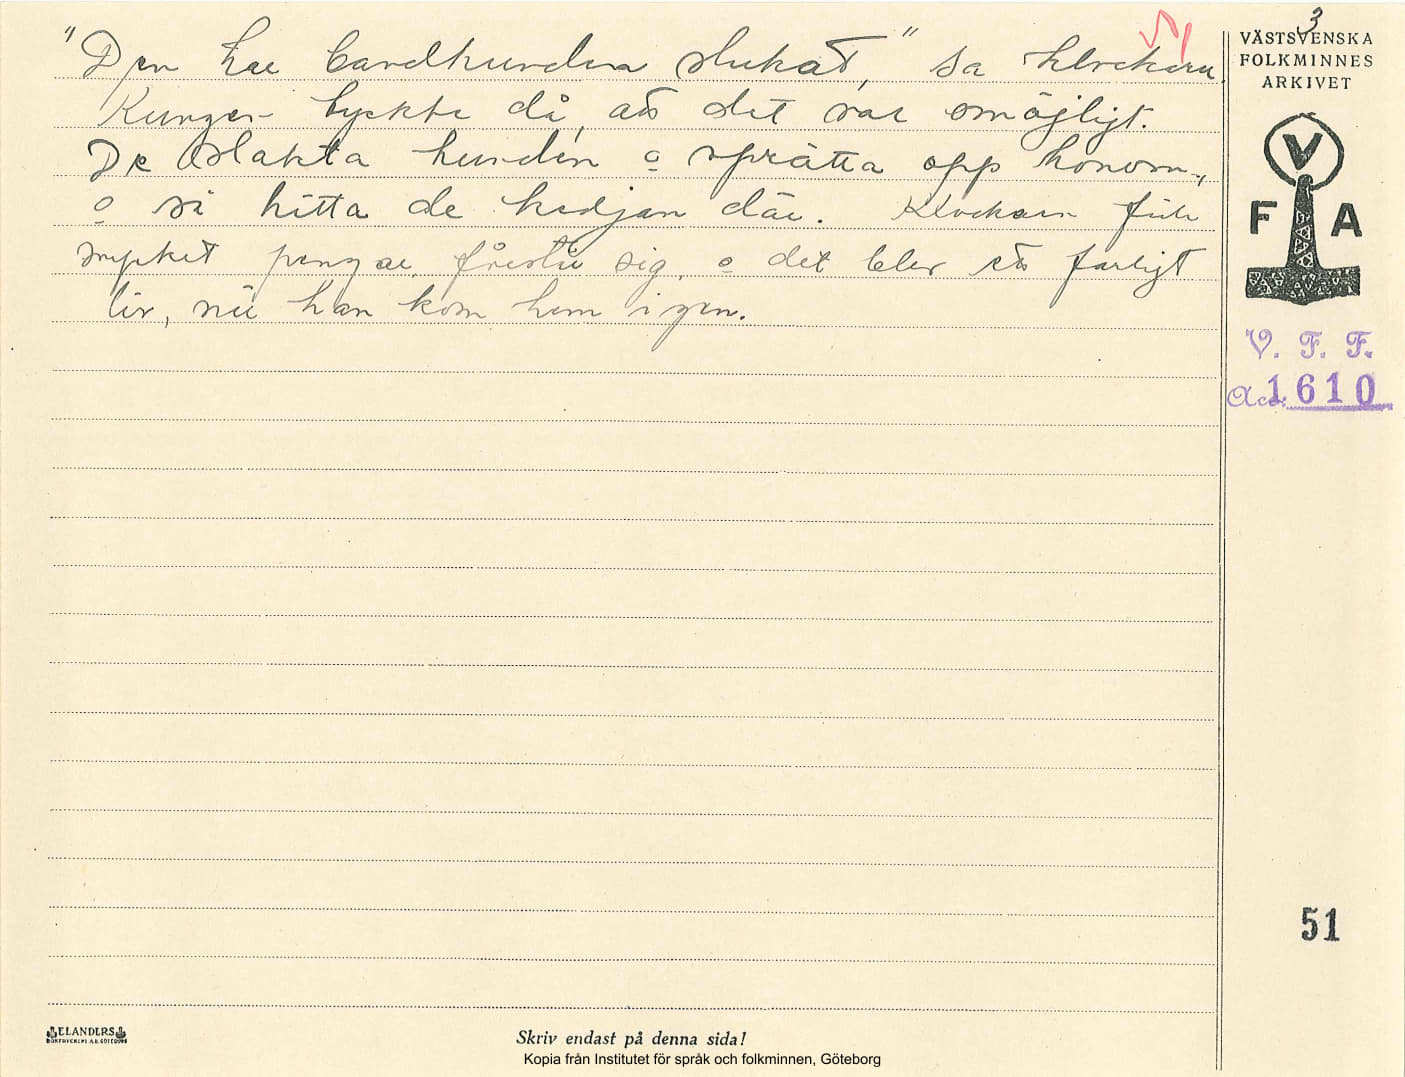 "Den har bandhunden slukat," sa klockarn.
Kungen tyckte då, att det var omöjligt.
De slakta hunden o sprätta opp honom,
o så hitta de kedjan där. Klockarn fick
mycket pengar förstår sig, o det blev ett farligt
liv, när han kom hem igen.
3
VÄSTSVENSKA
FOLKMINNES
ARKIVET
V
F A
V. F. F.
Acc. 1610
51
ELANDERS
BOKTRYCKERI A.B. GÖTEBORG
Skriv endast på denna sida!
Kopia från Institutet för språk och folkminnen, Göteborg